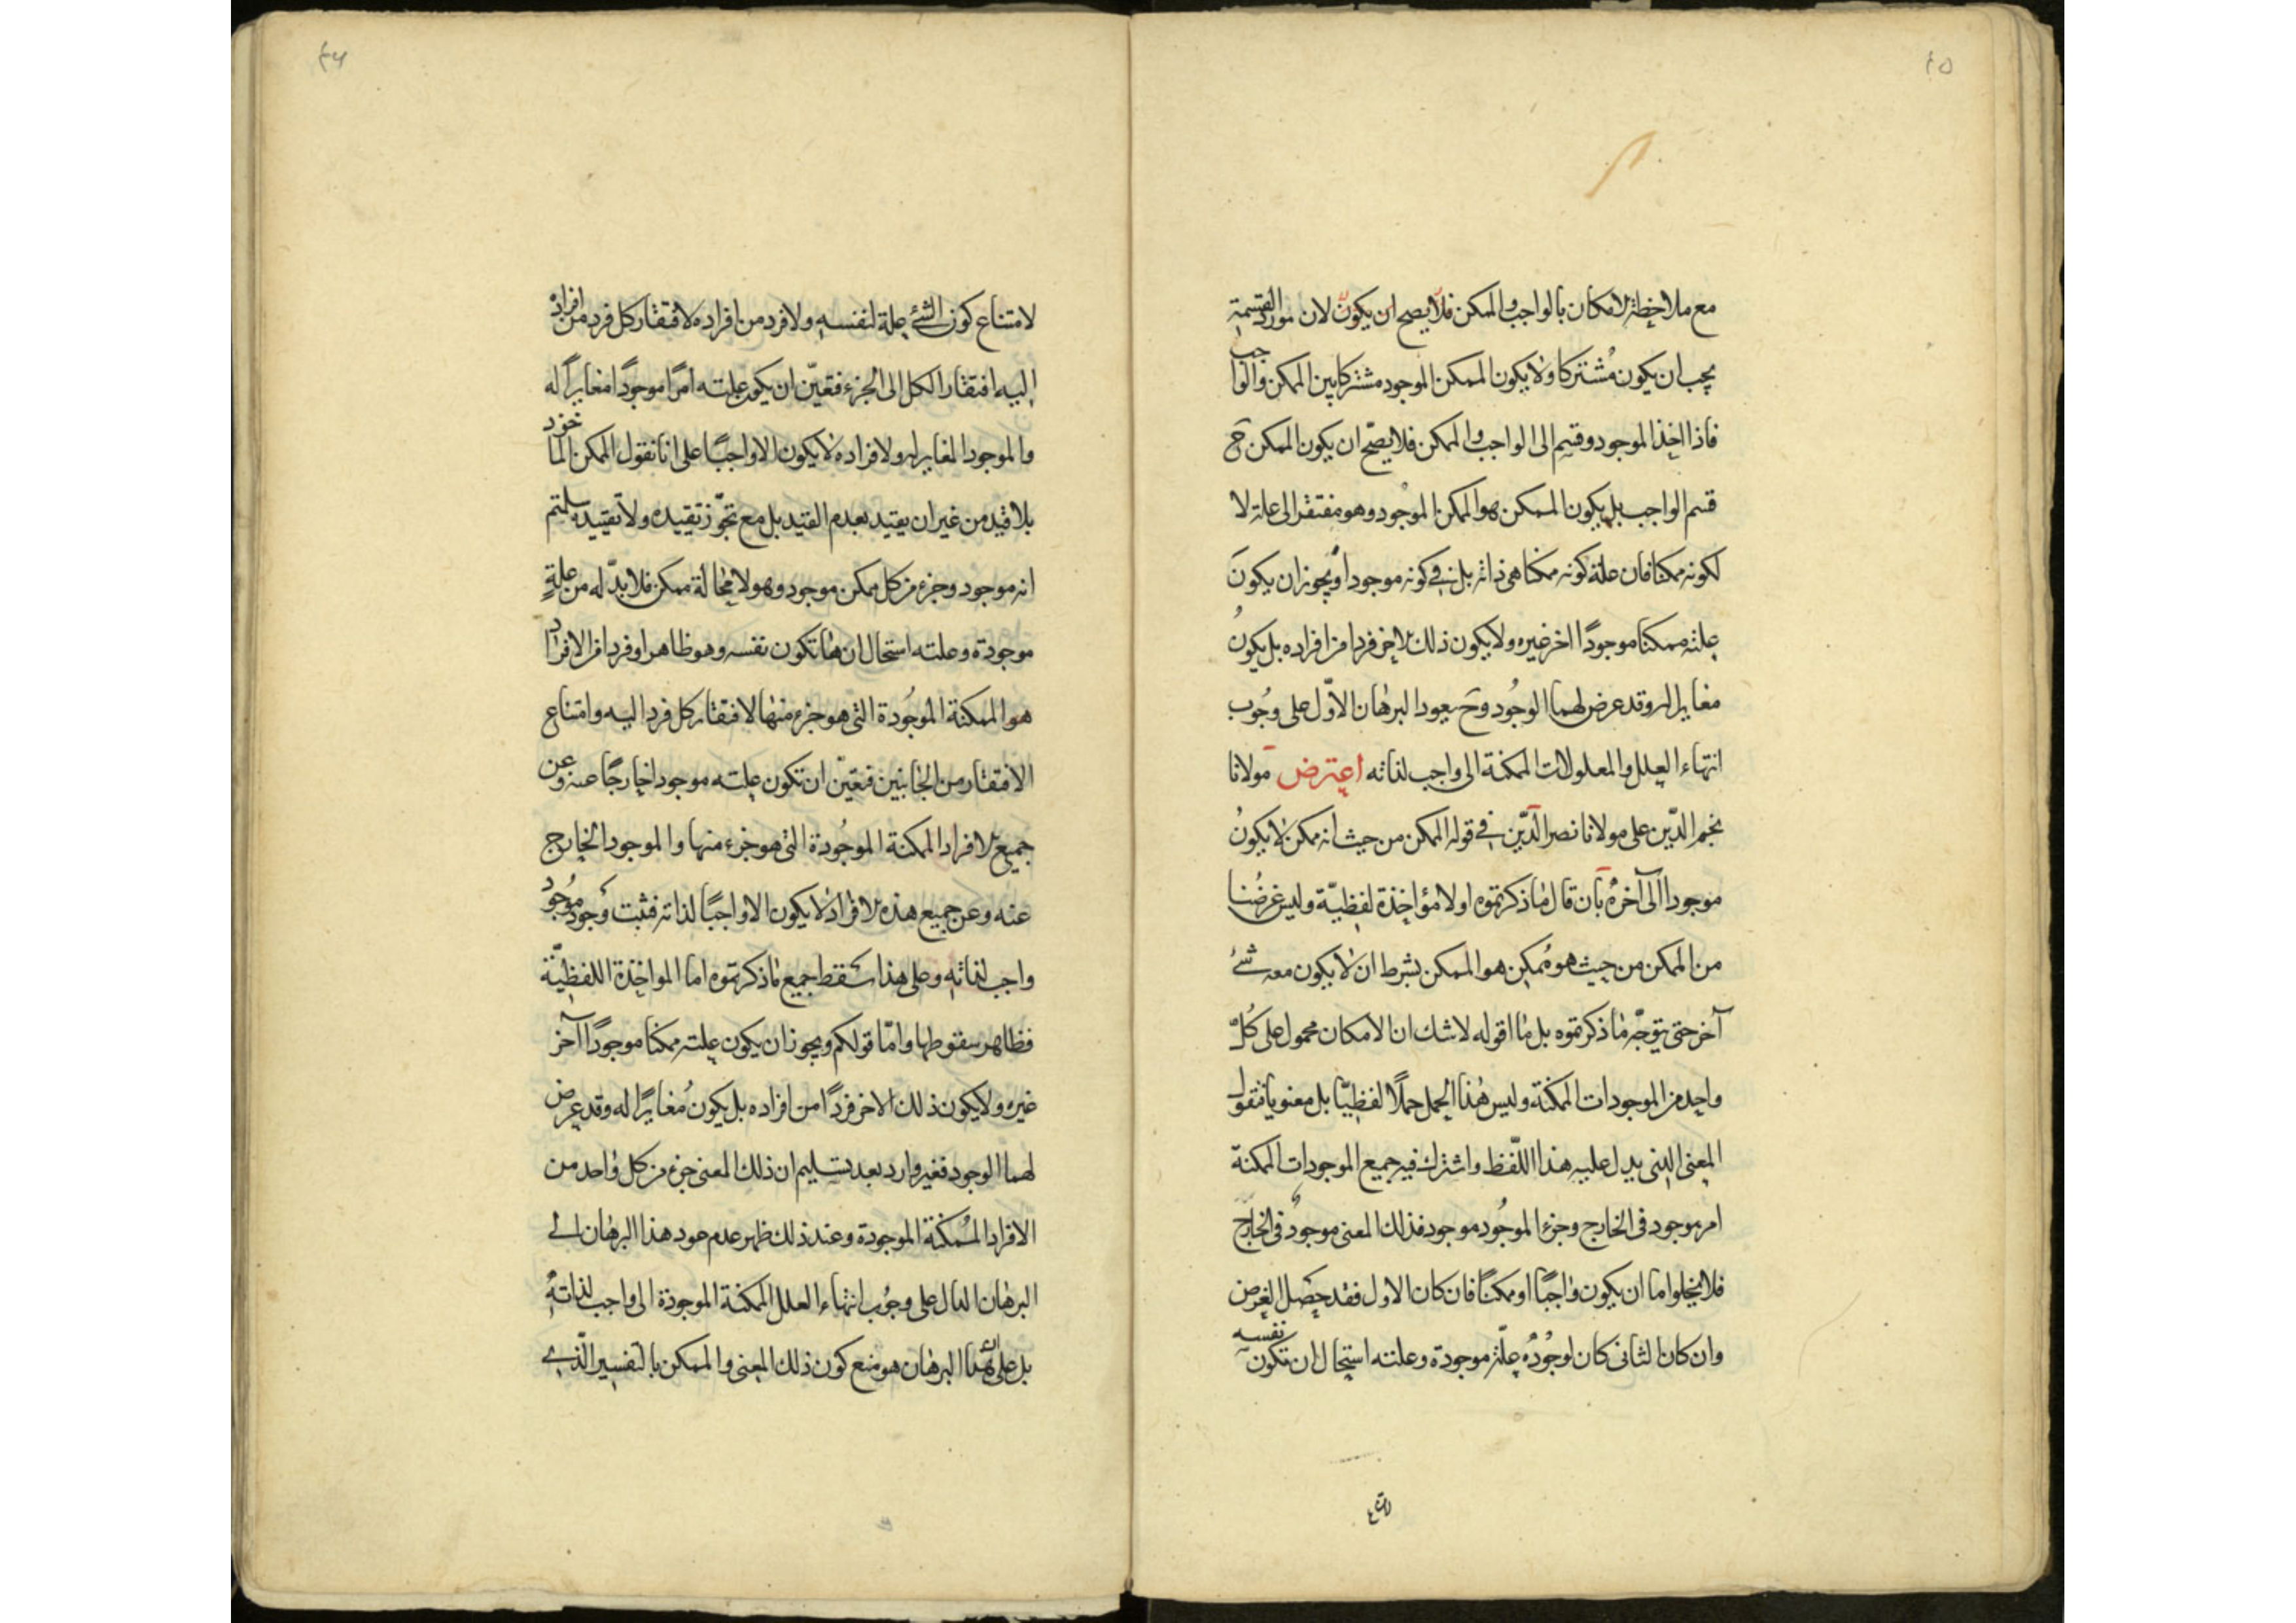 ٤٥
مع ملاحظة الامكان بالواجب والممكن فلا يصح ان يكون لان مورد القسمة
يجب ان يكون مشتركا ولا يكون الممكن الموجود مشتركا بين الممكن والواجب
فاذا اخذ الموجود وقسم الى الواجب والممكن فلا يصحّ ان يكون الممكن ح
قسم الواجب بل يكون الممكن هو الممكن الموجود وهو مفتقر الى علة لا
لكونه ممكنا فان علة كونه ممكنا هى ذاته بل فى كونه موجودا ويجوز ان يكون
علته ممكنا موجودًا اخر غيره ولا يكون ذلك الاخر فردا من افراده بل يكونُ
مغايرا له وقد عرض لهما الوجُود وح يعود البرهان الاوّل على وجُوب
انتهاء العلل والمعلولات الممكنة الى واجب لذاته اعترض مولانا
نجم الدّين على مولانا نصر الدّين فى قوله الممكن من حيث انه ممكن لا يكونُ
موجودا الى آخره بان قال ما ذكرتموه اولا مؤاخذة لفظيّة وليس غرضُنا
من الممكن من حيث هو مُمكن هو الممكن بشرط ان لا يكون معه شئ
آخر حتى يتوجّه ما ذكرتموه بل ما اقوله لا شك ان الامكان محمول على كُلّ
واحد من الموجودات الممكنة وليس هذا الحمل حملًا لفظيّا بل معنويا فنقول
المعنى الذى يدل عليه هذا اللّفظ واشترك فيه جميع الموجودات الممكنة
امر موجود فى الخارج وجزء الموجُود موجود فذلك المعنى موجودٌ فى الخارج
فلا يخلوا ما ان يكون واجبًا او ممكنًا فان كان الاول فقد حصَل الغرض
وان كان الثانى كان لوجُودُه علّة موجودة وعلته استحال ان تكون نفسه
٤٦
لامتناع كون الشئ علة لنفسه ولا فرد من افراده لافتقار كل فرد من افراده
اليه افتقار الكل الى الجزء فتعيّن ان يكون علته امرًا موجودًا مغايرًا له
والموجود المغاير له ولافراده لا يكون الا واجبًا على انا نقول الممكن الماخوذ
بلا قيد من غير ان يقيد بعدم القيد بل مع تجوّز تقييده ولا تقييده سلمتم
انه موجود وجزء من كل ممكن موجود وهو لا محالة ممكن فلا بدّ له من علةٍ
موجودة وعلته استحال ان تكون نفسه وهو ظاهر او فردا من الافراد
هو الممكنة الموجُودة التى هو جزء منها لافتقار كل فرد اليه وامتناع
الافتقار من الجانبين فتعيّن ان تكون علته موجودا خارجًا عنه وعن
جميع الافراد الممكنة الموجُودة التى هو جزء منها والموجود الخارج
عنه وعن جميع هذه الافراد لا يكون الا واجبًا لذاته فثبت وجود موجُود
واجب لذاته وعلى هذا سَقط جميع ما ذكرتموه اما المواخذة اللفظيّة
فظاهر سقوطها وامّا قولكم ويجوز ان يكون علته ممكنا موجودًا آخر
غيره ولا يكون ذلك الاخر فردًا من افراده بل يكون مُغايرًا له وقد عرض
لهما الوجود فغير وارد بعد تسليم ان ذلك المعنى جزء من كل واحد من
الافراد المُمكنة الموجودة وعند ذلك ظهر عدم عود هذا البرهان الى
البرهان الدال على وجُوب انتهاء العلل الممكنة الموجودة الى واجب لذاتهُ
بل على هذا البرهان هو منع كون ذلك المعنى والممكن بالتفسير الّذى